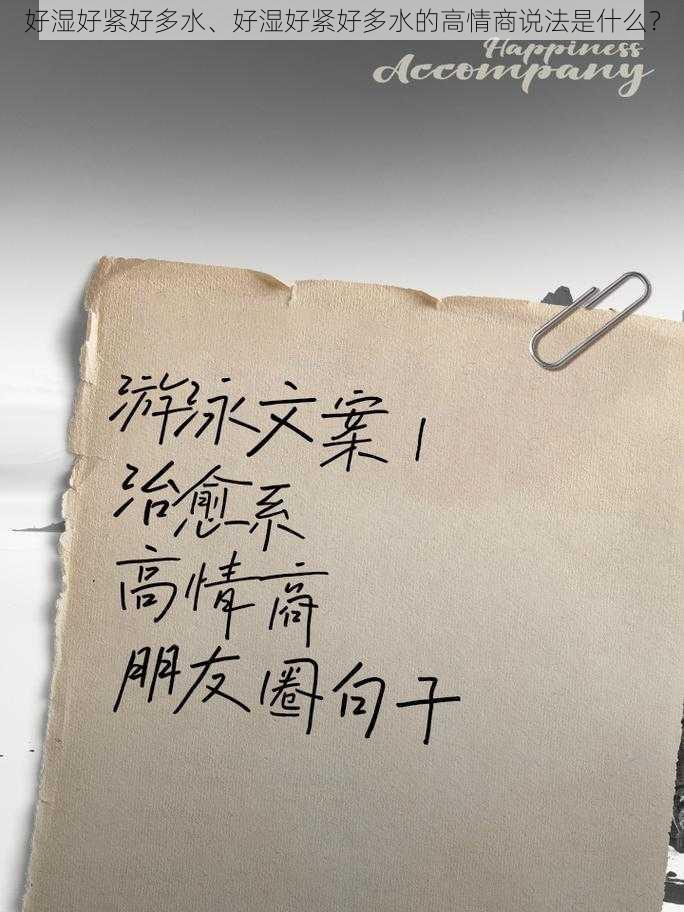 好湿好紧好多水、好湿好紧好多水的高情商说法是什么？
Happiness
Accompany
游泳文案 1
治愈系
高情商
朋友圈句子